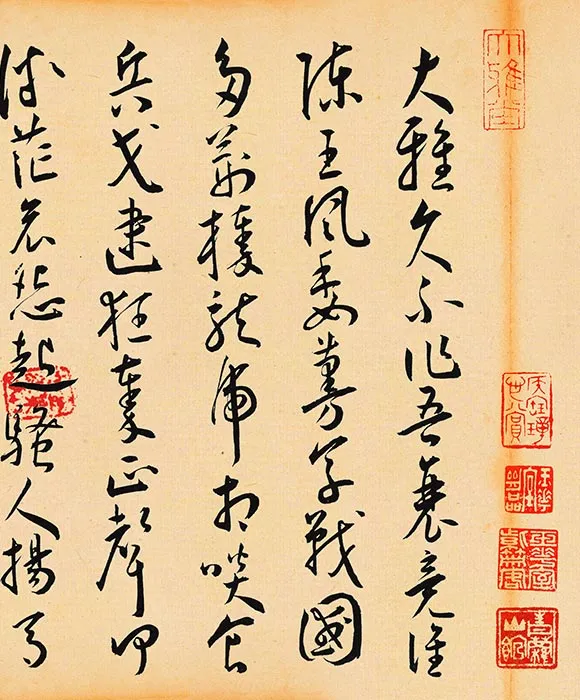 大雅久不作吾衰竟誰
陳王風委蔓草戰國
多荊榛龍虎相啖食
兵戈逮狂秦正聲何
微茫哀怨起騷人揚馬